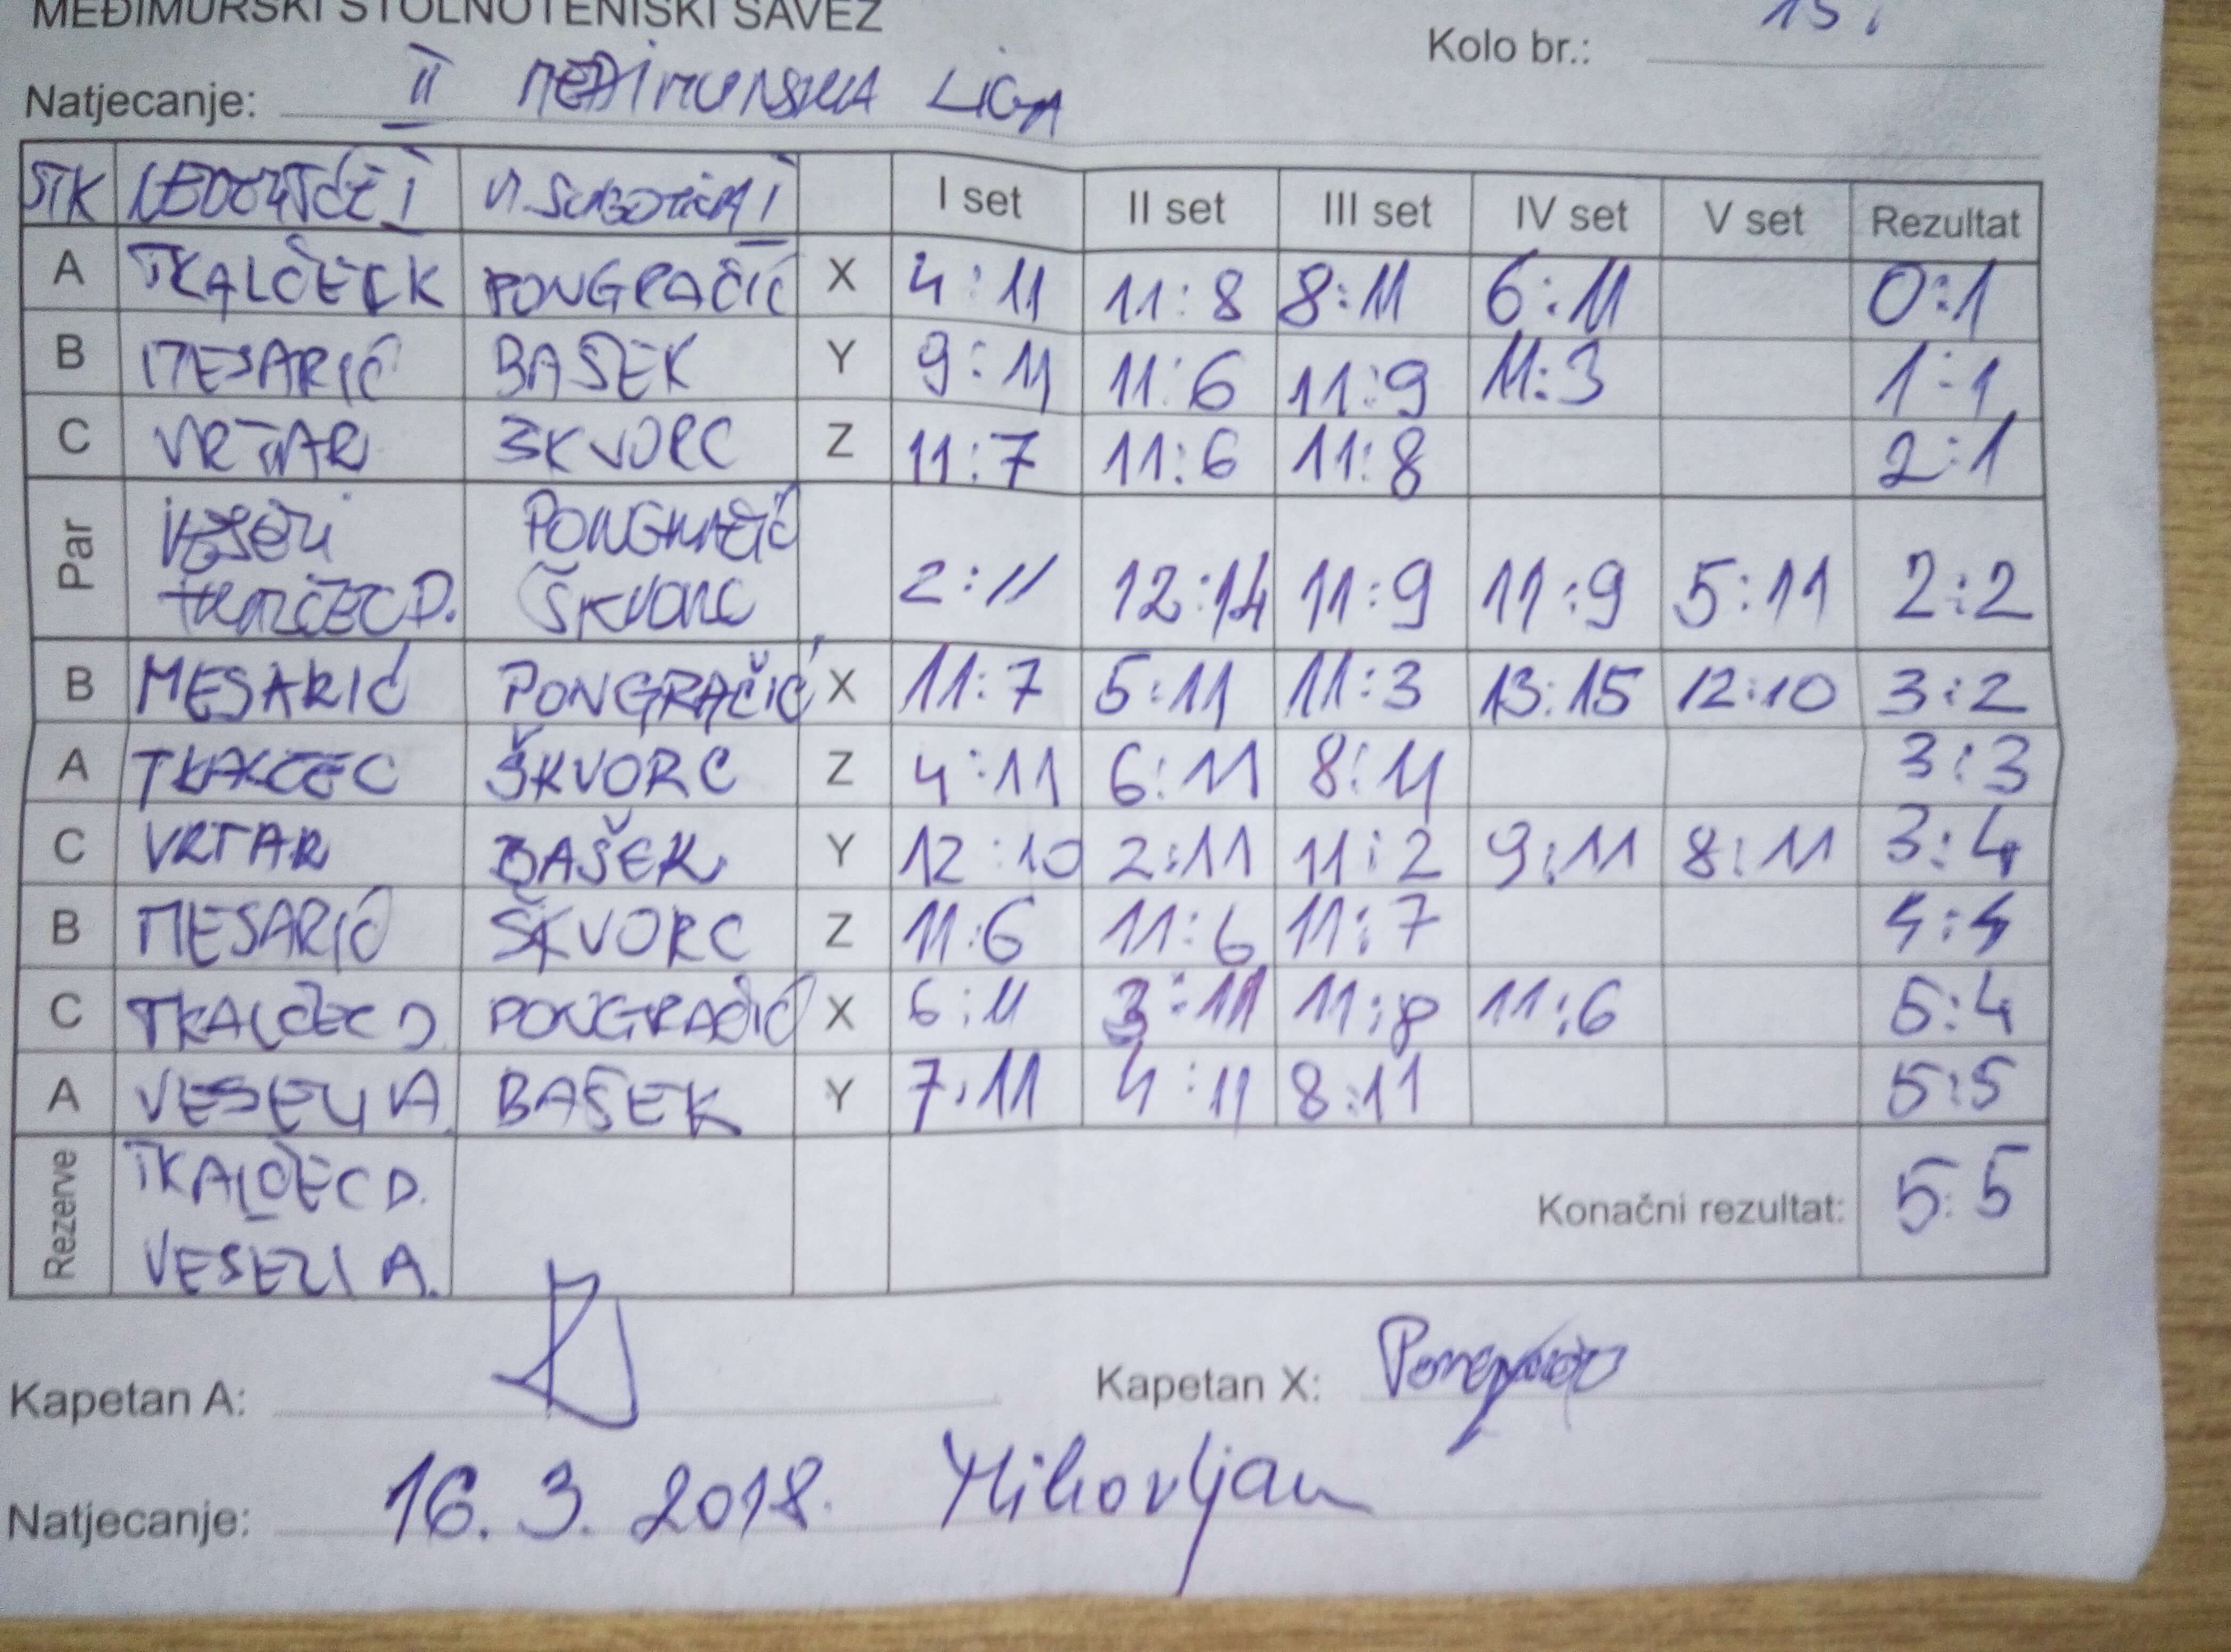 MEĐIMURSKI STOLNOTENISKI SAVEZ
Kolo br.: 15.
Natjecanje: II MEĐIMURSKA LIGA
STK I I I set II set III set IV set V set Rezultat
A TKALČEC K PONGRAČIĆ X 4:11 11:8 8:11 6:11 0:1
B MESARIĆ BAŠEK Y 9:11 11:6 11:9 11:3 1:1
C VRTAR ŠKVORC Z 11:7 11:6 11:8 2:1
Par VESELI PONGRAČIĆ
TKALČEC D. ŠKVORC 2:11 12:14 11:9 11:9 5:11 2:2
B MESARIĆ PONGRAČIĆ X 11:7 5:11 11:3 13:15 12:10 3:2
A TKALČEC ŠKVORC Z 4:11 6:11 8:11 3:3
C VRTAR BAŠEK Y 12:10 2:11 11:2 9:11 8:11 3:4
B MESARIĆ ŠKVORC Z 11:6 11:6 11:7 4:4
C TKALČEC D. PONGRAČIĆ X 6:11 3:11 11:8 11:6 5:4
A VESELI A. BAŠEK Y 7:11 4:11 8:11 5:5
Rezerve TKALČEC D.
VESELI A.
Konačni rezultat: 5:5
Kapetan A: Kapetan X:
Natjecanje: 16. 3. 2018. Mihovljan